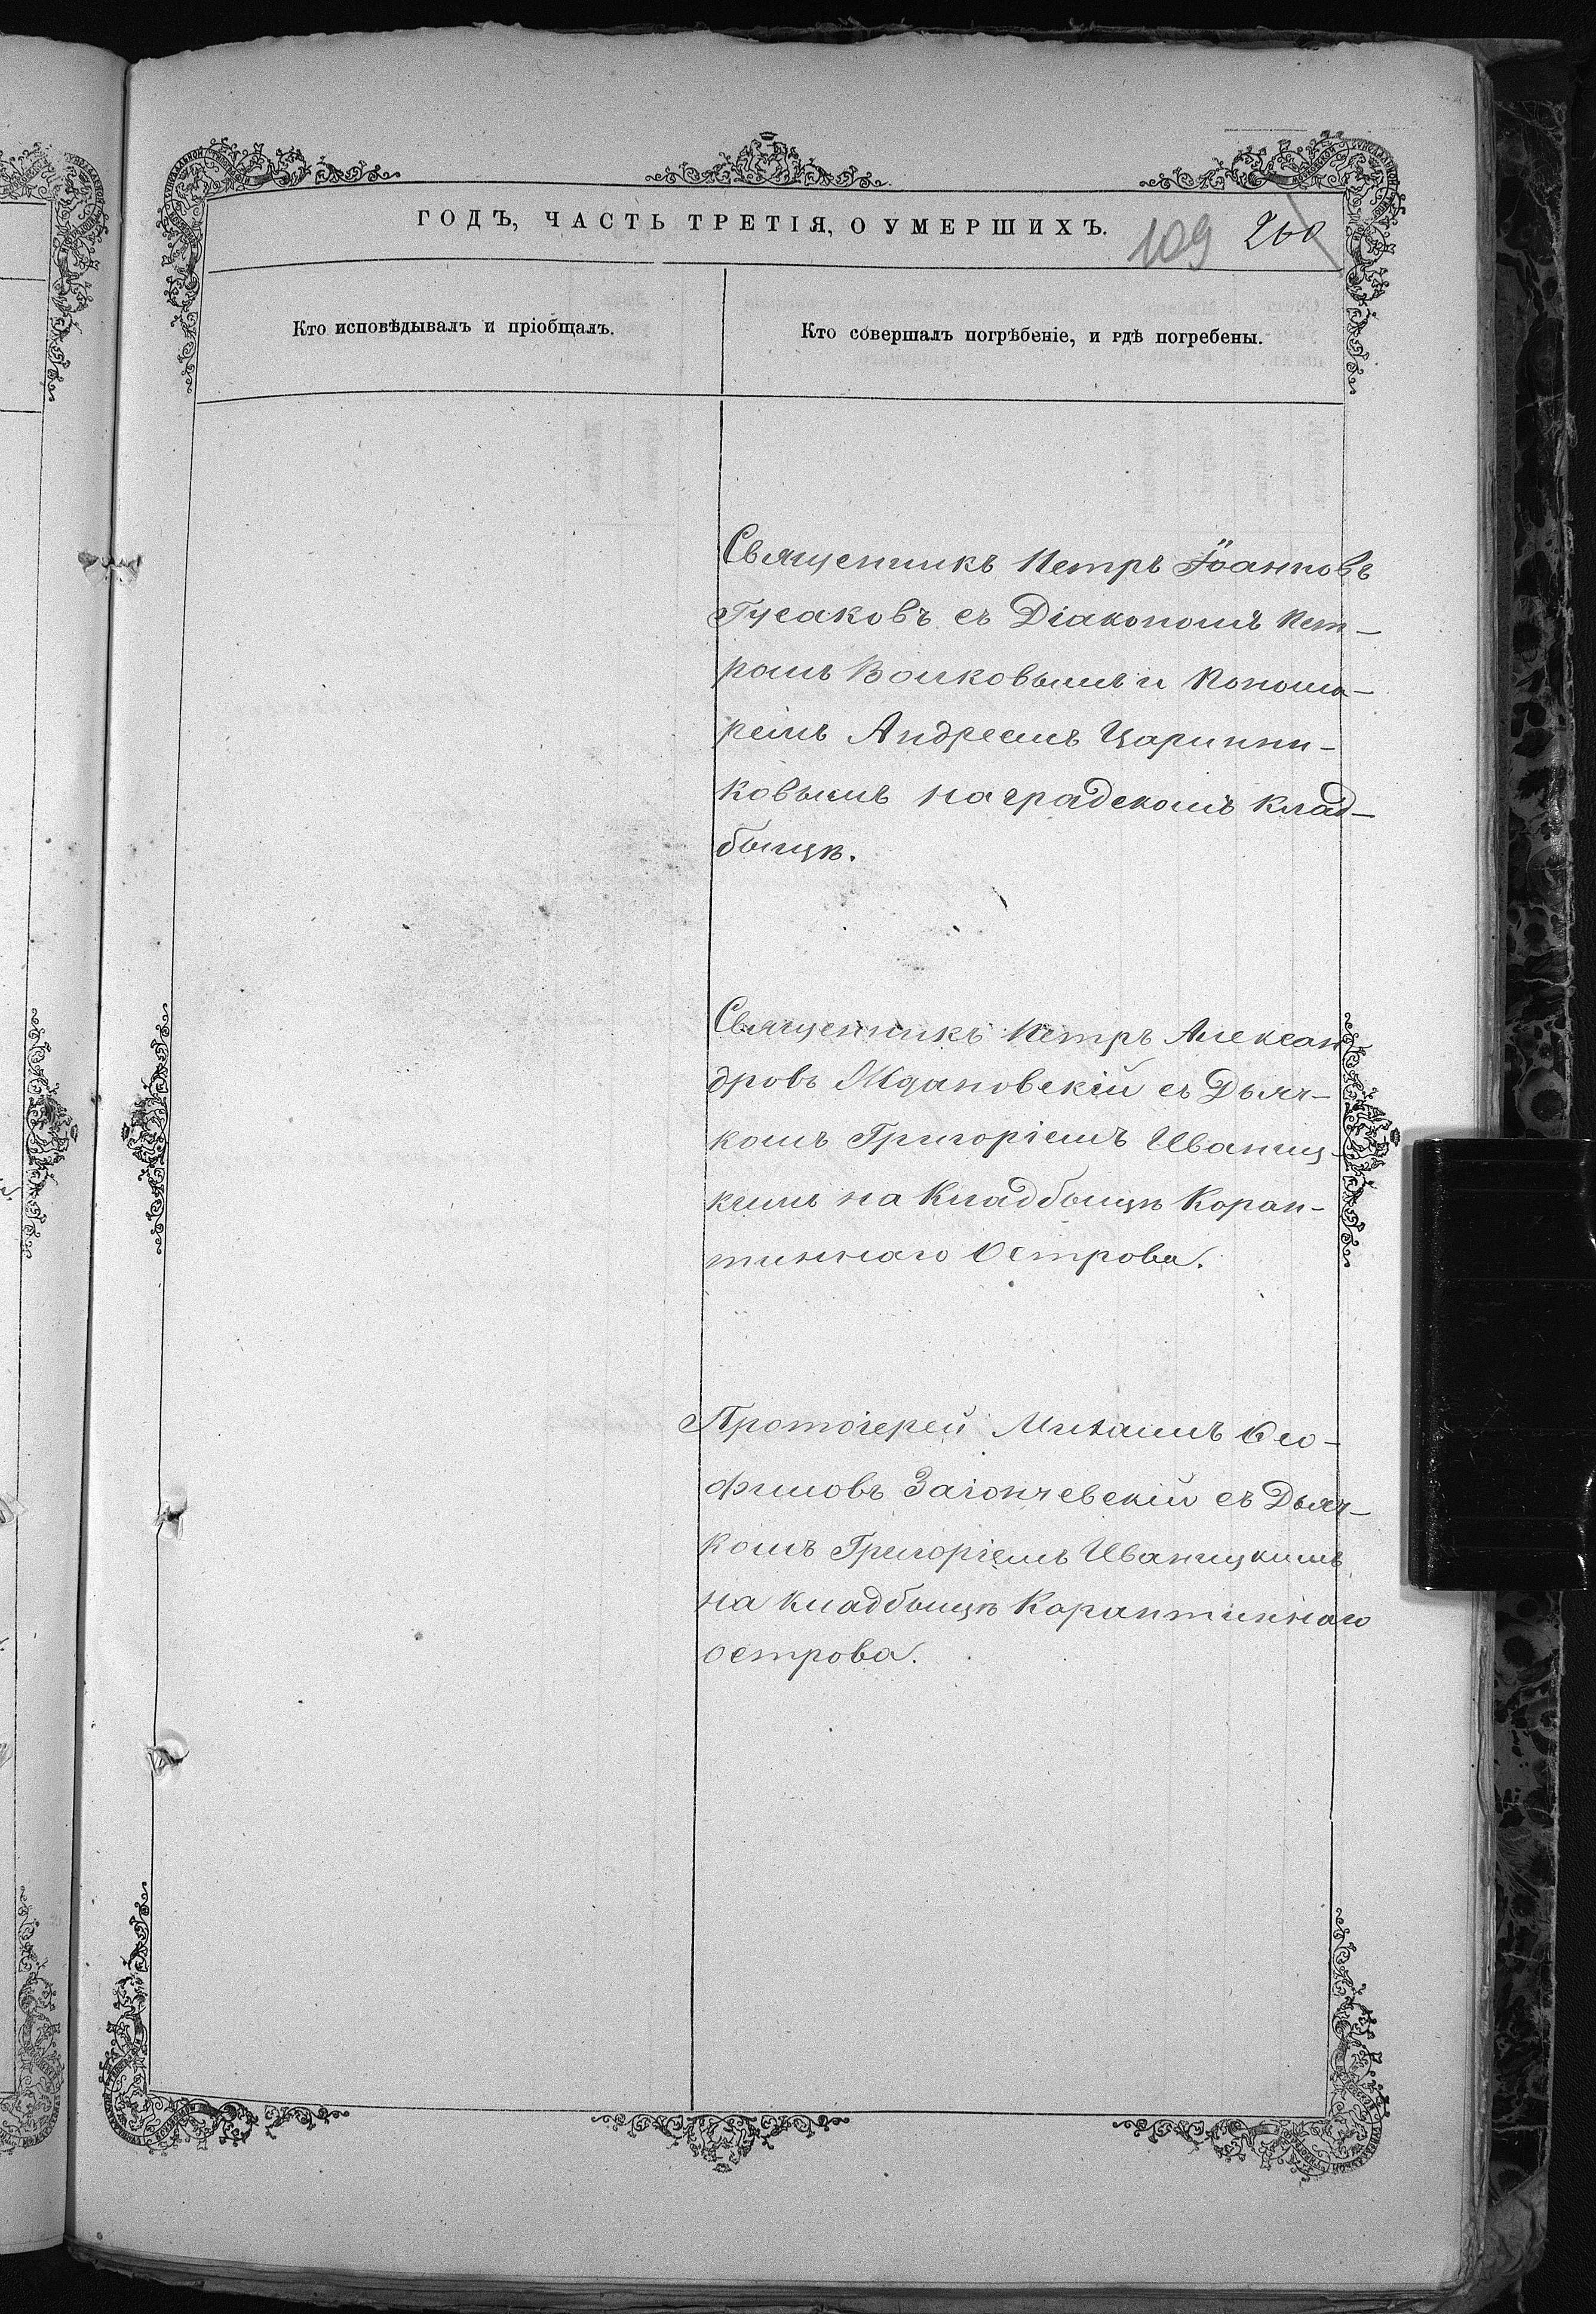 ГОДЪ, ЧАСТЬ ТРЕТІЯ, О УМЕРШИХЪ.
109 260
Кто исповѣдывалъ и пріобщалъ.
Кто совершалъ погрѣбеніе, и гдѣ погребены.
Священникъ Петръ Іоанновъ
Гусаковъ съ Діакономъ Пет-
ромъ Волковымъ и Понома-
ремъ Андреемъ Царинни-
ковымъ на градскомъ клад-
бищѣ.
Священникъ Петръ Алексан
дровъ Ждановскій съ Дьяч-
комъ Григоріемъ Иваниц-
кимъ на Кладбищѣ Коран-
тиннаго Острова.
Протоіерей Михаилъ Ѳео-
филовъ Загончевскій съ Дьяч-
комъ Григоріемъ Иваницкимъ
на Кладбищѣ Карантиннаго
острова.